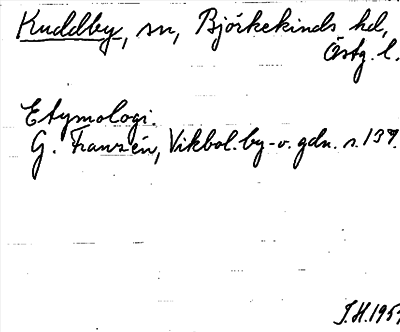 Kuddby, sn, Björkekinds hd,
Östg. l.
Etymologi.
G. Franzén, Vikbol. by- o. gdn. s. 139.
J.H. 195